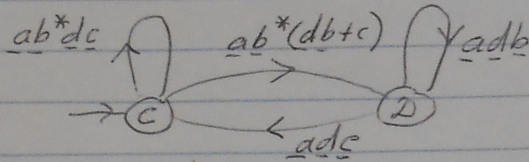 ab*dc
ab*(db+c)
adb
C
D
adc